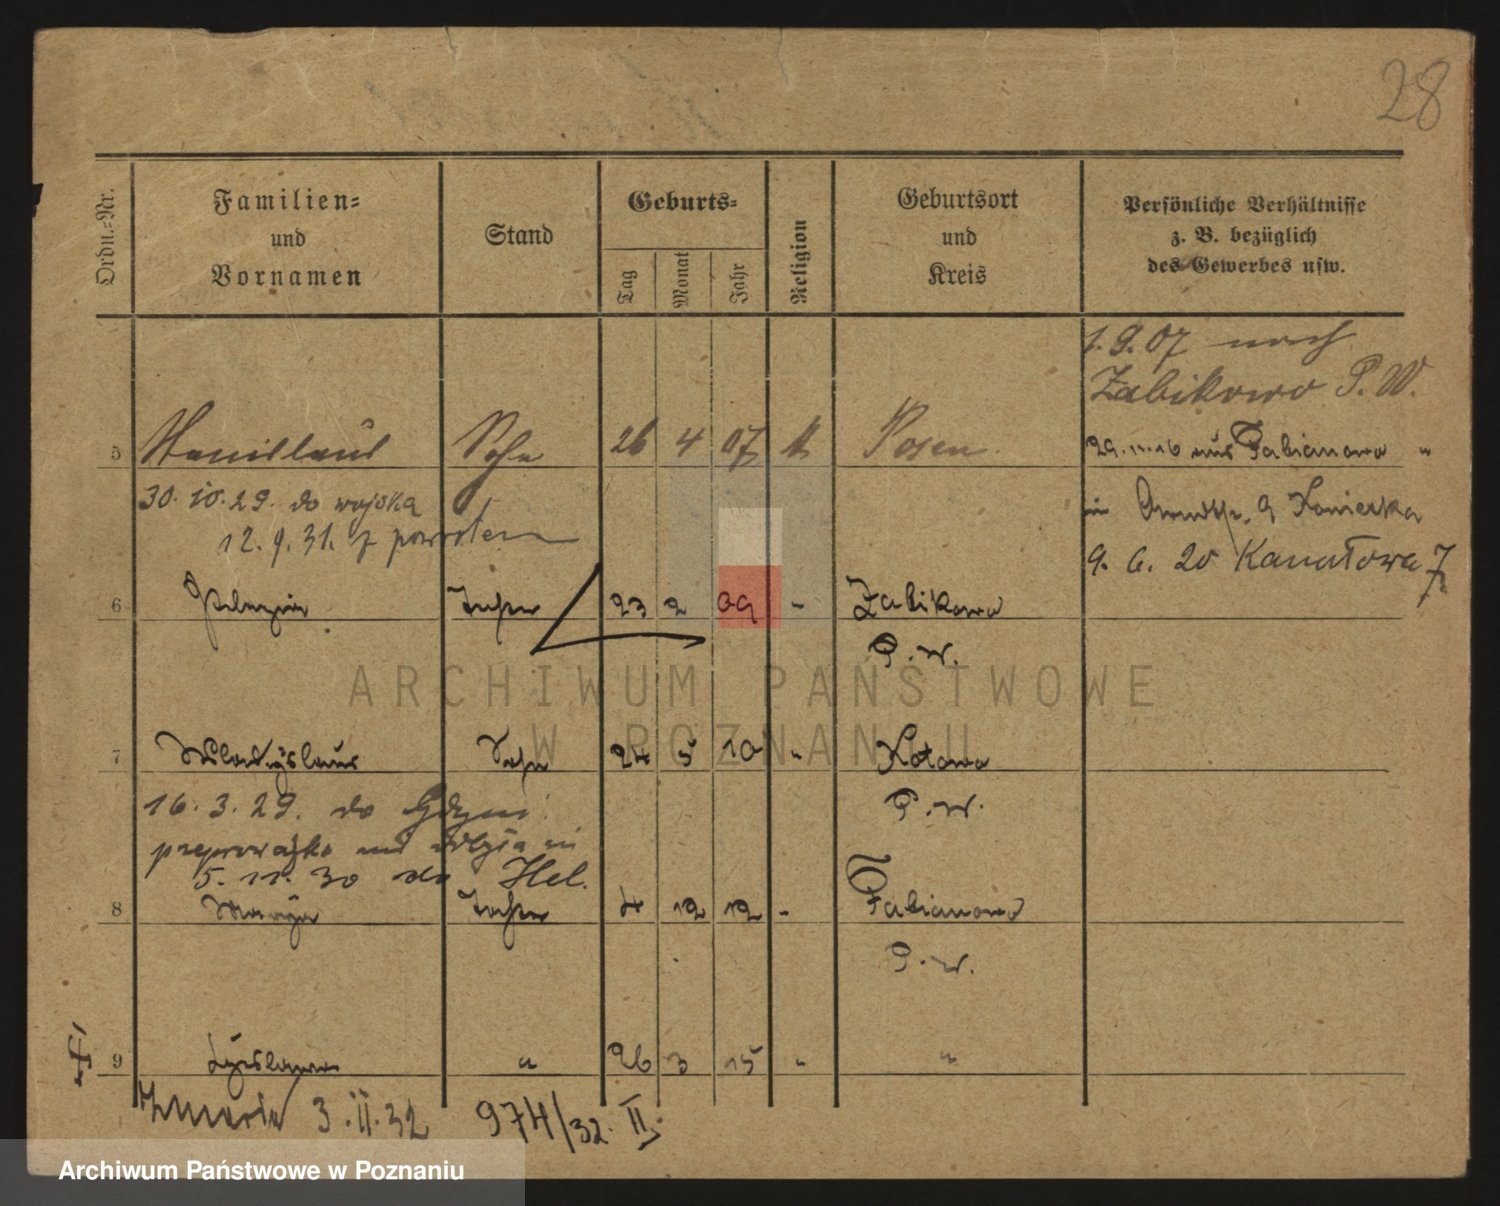 28
Ordn.-Nr.
Familien-
und
Vornamen
Stand
Geburts-
Tag
Monat
Jahr
Religion
Geburtsort
und
Kreis
Persönliche Verhältnisse
z. B. bezüglich
des Gewerbes usw.
1.9.07 nach
Zabikowo P. W.
5 Stanislaus Sohn 26 4 07 k Posen 29.11.16 aus Fabianowo "
30.10.29. do wojska
in 9
12.9.31. z powrotem
9. 6. 20 Kanałowa 7
6 Pelagia Tochter 23 2 09 - Zabikowo
P. W.
7 Wladyslaus Sohn 24 5 10 " Kotowo
P. W.
16. 3. 29. do Gdyni
5. 11. 30 do Hel.
8 Marya Tochter 4 12 12 - Fabianowo
P. W.
9 " 26 3 15 " "
Zmarła 3.II.32 974/32. II
ARCHIWUM PAŃSTWOWE
W POZNANIU
Archiwum Państwowe w Poznaniu